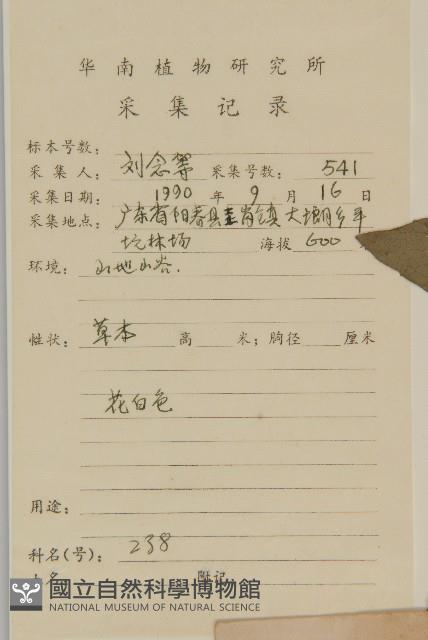 华南植物研究所
采集记录
标本号数:
采集人: 刘念等 采集号数: 541
采集日期: 1990 年 9 月 16 日
采集地点: 广东省阳春县圭岗镇 大塱乡平
坑林场 海拔 600
环境: 山地山谷.
性状: 草本 高 米; 胸径 厘米
花白色
用途:
科名(号): 238
附记
國立自然科學博物館
NATIONAL MUSEUM OF NATURAL SCIENCE